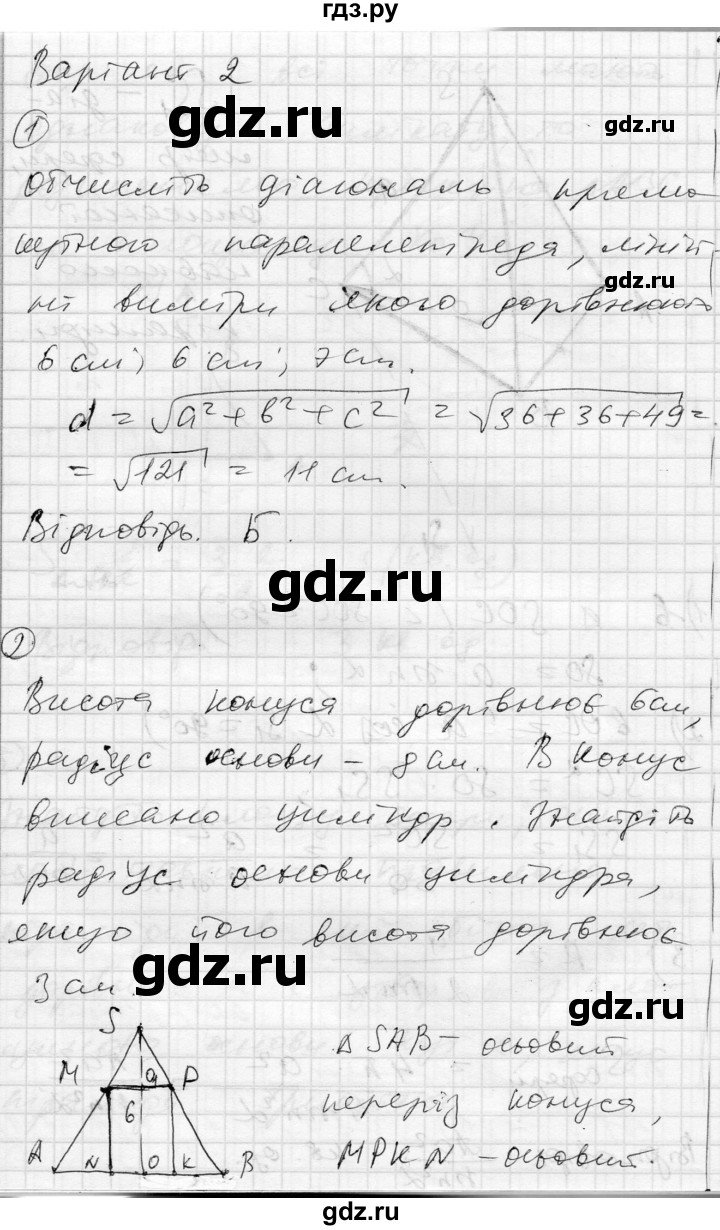 гдз.ру
Варіант 2
1
обчисліть діагональ прямо
кутного паралелепіпеда, ліній-
ні виміри якого дорівнюють
6 см; 6 см; 7 см.
d = √a² + b² + c² = √36+36+49 =
= √121 = 11 см.
Відповідь. Б.
2
Висота конуса дорівнює 6см,
радіус основи – см. В конус
вписано циліндр. Знайдіть
радіус основи циліндра,
якщо його висота дорівнює
3 см.
S
M Q P
6
A N O K B
△ SAB – осьовий
переріз конуса,
MPKN – осьовий.
gdz.ru
gdz.ru
gdz.ru
gdz.ru
gdz.ru
gdz.ru
gdz.ru
gdz.ru